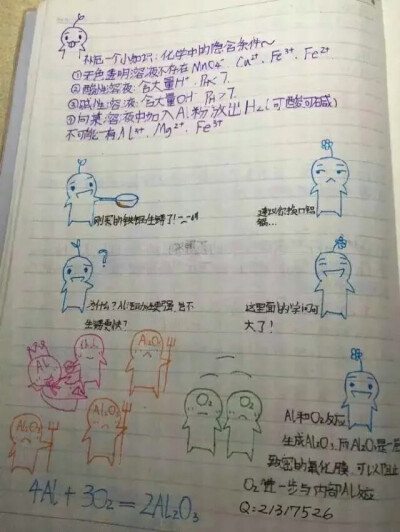 补充一个小知识:化学中的隐含条件～
①无色透明溶液不存在MnO4⁻ Cu²⁺ Fe³⁺ Fe²⁺
②酸性溶液:含大量H⁺ PH<7.
③碱性溶液:含大量OH⁻ PH>7.
④向某溶液中加入Al粉放出H2(可酸可碱)
不可能有Al³⁺、Mg²⁺、Fe³⁺
刚买的铁锅生锈了!
建议你换口铝
锅...
?
为什么?Al
生锈更快?
这里面的学问可
大了!
Al
Al2O3
Al2O3
Al2O3
O2
O2
Al和O2反应
生成Al2O3,而Al2O3是一层
致密的氧化膜,可以阻止
O2进一步与内部Al反应
4Al+3O2=2Al2O3
Q=21317526